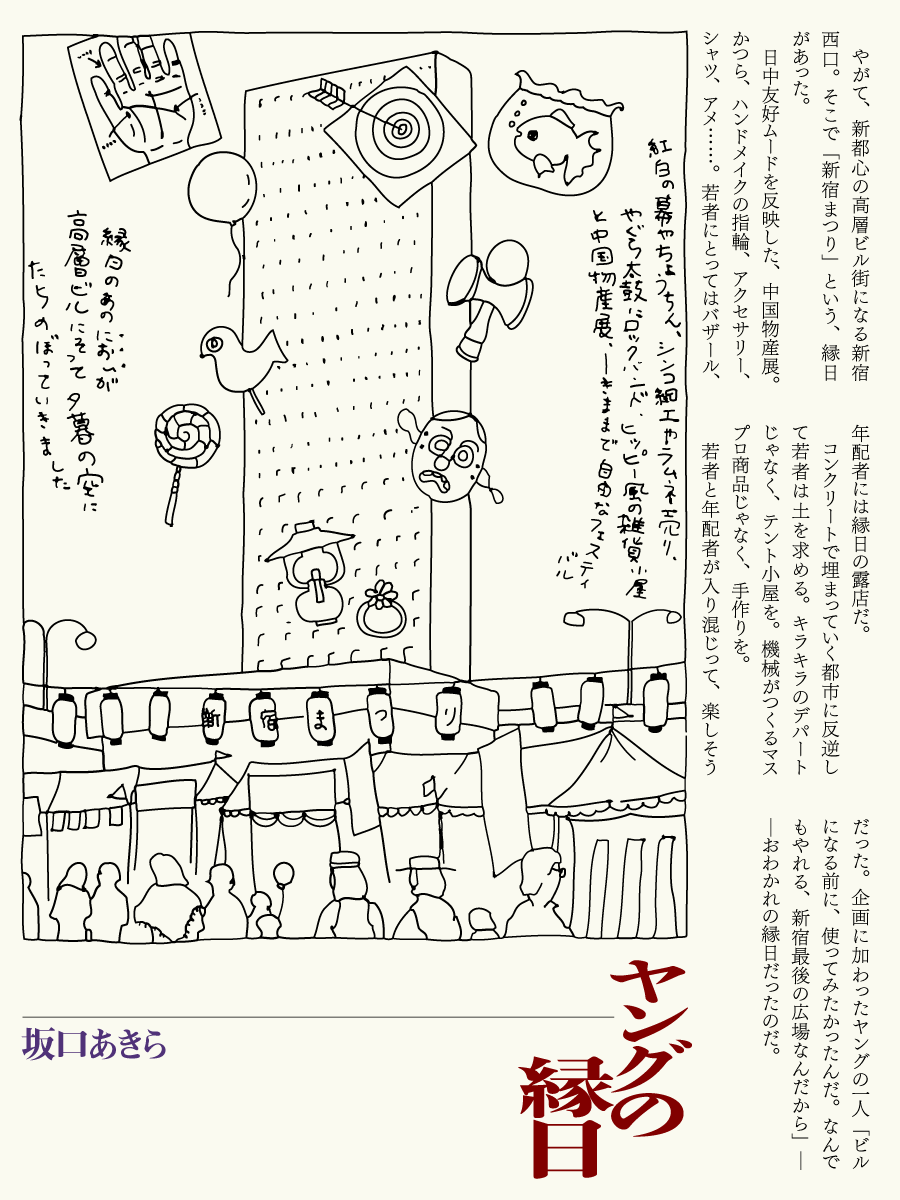 やがて、新都心の高層ビル街になる新宿
西口。そこで「新宿まつり」という、縁日
があった。
日中友好ムードを反映した、中国物産展。
かつら、ハンドメイクの指輪、アクセサリー、
シャツ、アメ……。若者にとってはバザール、
年配者には縁日の露店だ。
コンクリートで埋まっていく都市に反逆し
て若者は土を求める。キラキラのデパート
じゃなく、テント小屋を。機械がつくるマス
プロ商品じゃなく、手作りを。
若者と年配者が入り混じって、楽しそう
だった。企画に加わったヤングの一人「ビル
になる前に、使ってみたかったんだ。なんで
もやれる、新宿最後の広場なんだから」―
―おわかれの縁日だったのだ。
紅白の幕やちょうちん、シンコ細工やラムネ売り、
やぐら太鼓にロックバンド、ヒッピー風の雑貨小屋
と中国物産展、―きままで自由なフェスティ
バル
縁日のあのにおいが
高層ビルにそって夕暮の空に
たちのぼっていきました
新宿まつり
ヤングの
縁日
坂口あきら